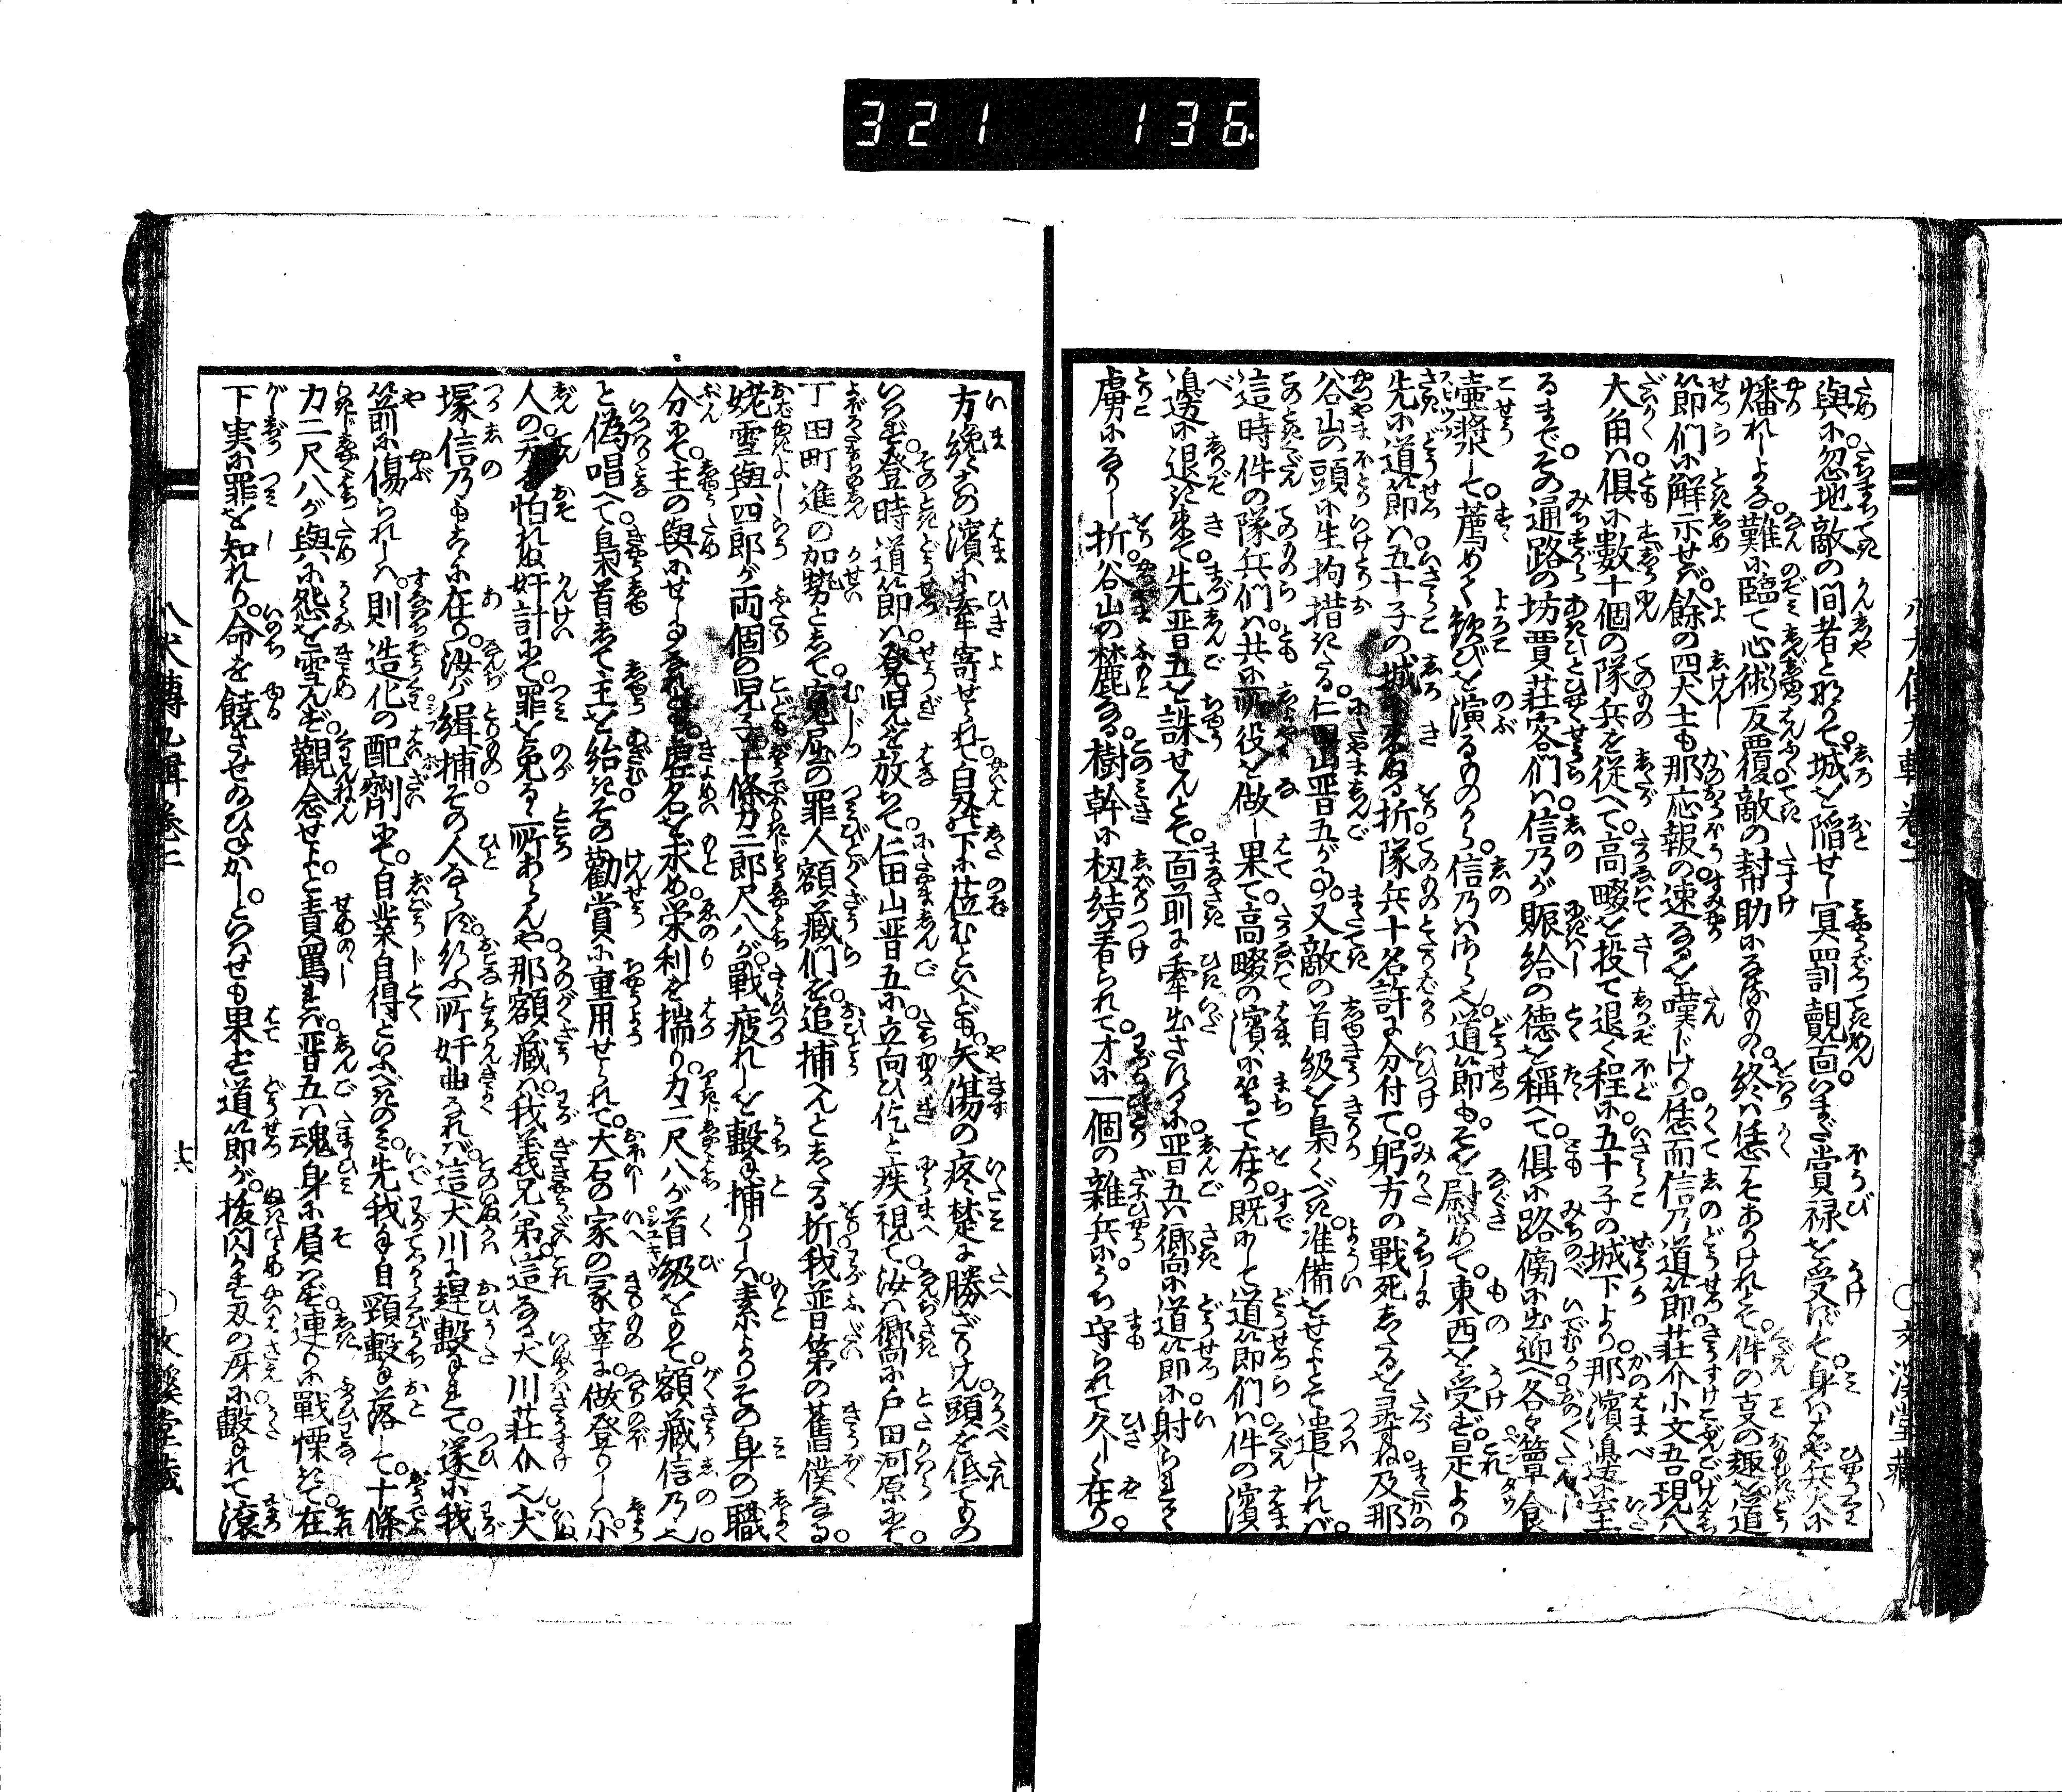 321 136
與に忽地敵の間者と做りて城を陥せし冥罰覿面いまだ賞禄を受ずして身ははや兵火に
燔れしよな難に臨て心術反覆敵の幇助になるものゝ終は恁こそありけれとて件の支の趣を道
節們に解示せば餘の四犬士も那応報の速なるを嘆じけり恁而信乃道節荘介小文吾現八
大角は倶に數十個の隊兵を従へて高畷を投て退く程に五十子の城下より那濱邊に至
るまでその通路の坊賈荘客們は信乃が賑給の徳を稱へて倶に路傍に出迎へ各々簞食
壷漿して薦めて歓びを演るものから信乃はさら也道節もそを慰めて東西を受ず是より
先に道節は五十子の城に来ぬる折隊兵十名許に分付て躬方の戰死したるを尋ね及那
谷山の頭に生拘措たる仁田山晋五が叓又敵の首級を梟くべき准備をせよとて遣しければ
這時件の隊兵們は共に所役を做し果て高畷の濱に等て在り既にして道節們は件の濱
邊に退き来て先晋五を誅せんとて面前に牽出さするに晋五は嚮に道節に射られて
虜になりし折谷山の麓なる樹幹に杻結著られて才に一個の雑兵にうち守られて久しく在り
方纔この濱に牽寄せられて白刄の下に莅むといへども矢傷の疼楚に勝ざりけん頭を低てもの
いはず登時道節は登兒を放ちて仁田山晋五に立向ひ佶と疾視て汝は嚮に戸田河原にて
丁田町進の加勢として寃屈の罪人額藏們を追捕へんとしたる折我昔第の舊僕なる
姥雪與四郎が両個の兒子十條力二郎尺八が戰疲れしを轂て捕りしは素よりその身の職
分にて主の與にせしなれども虚名を求め栄利を揣り力二尺八が首級をもて額藏信乃也
と偽唱へて梟首して主を紿きその勸賞に重用せられて大石の家の家宰に做登りしは小
人の天を怕れぬ奸計にて罪を免るゝ所あらんや那額藏は我義兄弟這なる犬川荘介也犬
塚信乃もこゝに在り汝が緝捕その人ならず行ふ所奸曲なれば這犬川に趕轂れて遂に我
箭に傷られしは則造化の配劑にて自業自得といふべきのみ先我手自頸轂落して十條
力二尺八が與に怨を雪んず觀念せよと責罵れば晋五は魂身に屓ず連りに戰慄きて在
下実に罪を知れり命を饒させ給ひねかしといはせも果ず道節が抜閃す刄の冴に轂れて滾
八犬傳九輯卷二
十六
文溪堂藏